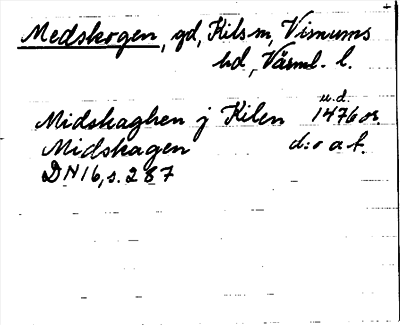 Medskogen, gd, Kils sn, Visnums
hd, Värml. l.
u.d.
Midskaghen j Kilen 1476 or.
Midskagen d:o a f.
DN 16, s. 287